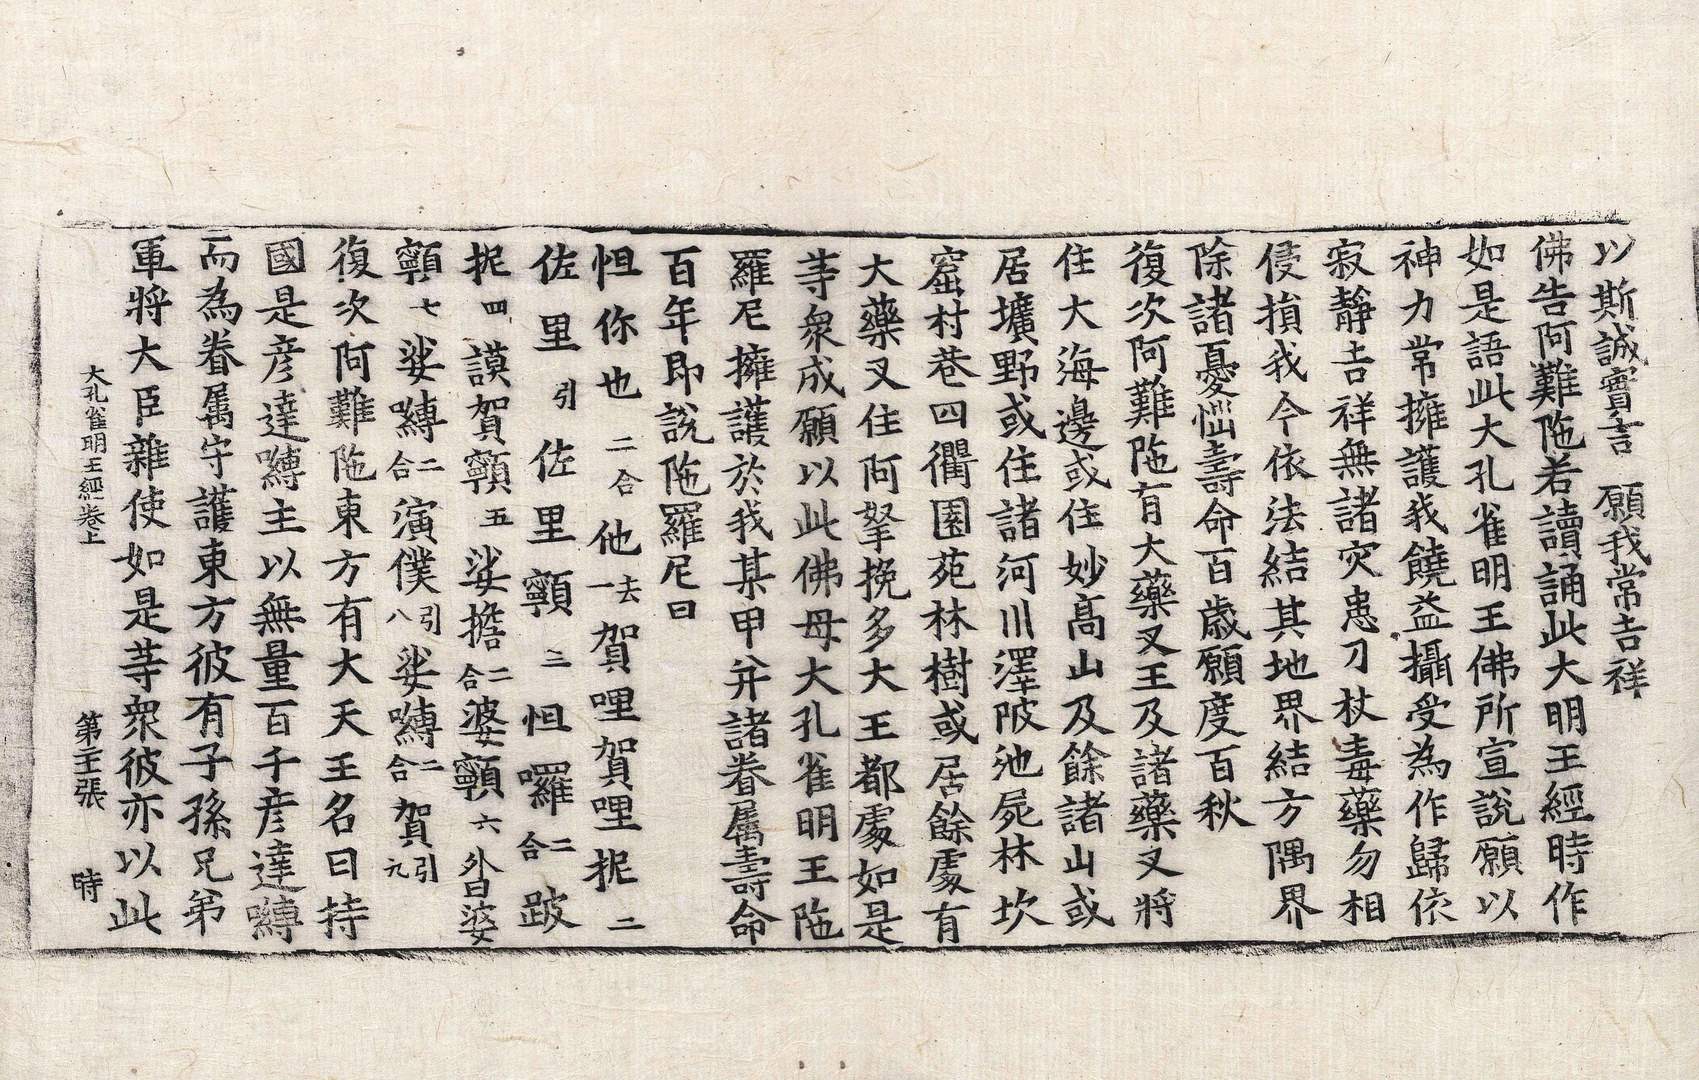 以斯誠實言 願我常吉祥
佛告阿難陁若讀誦此大明王經時作
如是語此大孔雀明王佛所宣說願以
神力常擁護我饒益攝受為作歸依
寂靜吉祥無諸灾患刀杖毒藥勿相
侵損我今依法結其地界結方隅界
除諸憂惱壽命百歲願度百秋
復次阿難陁有大藥叉王及諸藥叉將
住大海邊或住妙高山及餘諸山或
居壙野或住諸河川澤陂池屍林坎
窟村巷四衢園苑林樹或居餘處有
大藥叉住阿拏挽多大王都處如是
等衆成願以此佛母大孔雀明王陁
羅尼擁護於我某甲并諸眷屬壽命
百年即說陁羅尼曰
怛你也二合他去一賀哩賀哩抳二
佐里引佐里顐三怛囉二合跛
抳四謨賀顐五娑擔二合婆顐六昝婆
顐七娑嚩二合演僕引八娑嚩二合賀引九
復次阿難陁東方有大天王名曰持
國是彦達嚩主以無量百千彦達嚩
而為眷屬守護東方彼有子孫兄弟
軍將大臣雜使如是等衆彼亦以此
大孔雀明王經卷上 張 時